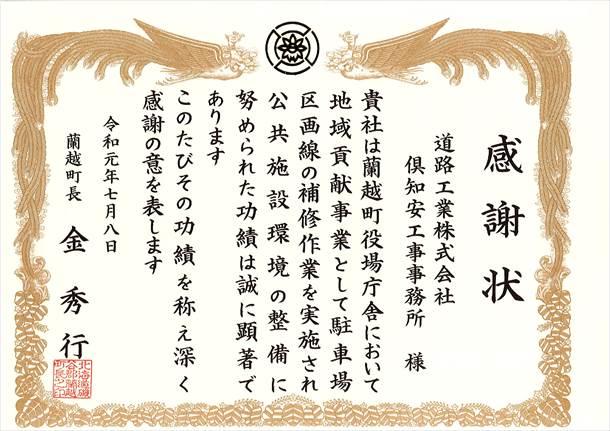 感謝状
道路工業株式会社
倶知安工事事務所 様
貴社は蘭越町役場庁舎において
地域貢献事業として駐車場
区画線の補修作業を実施され
公共施設環境の整備に
努められた功績は誠に顕著で
あります
このたびその功績を称え深く
感謝の意を表します
令和元年七月八日
蘭越町長 金秀行
北海道磯
谷郡蘭越
町長之印